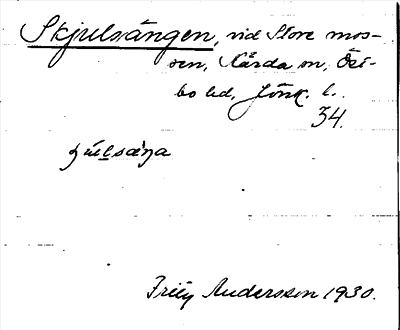 Skjulsängen, vid Store mos-
sen, Kärda sn, Öst-
bo hd, Jönk. l.
34.
Frity Andersson 1930.